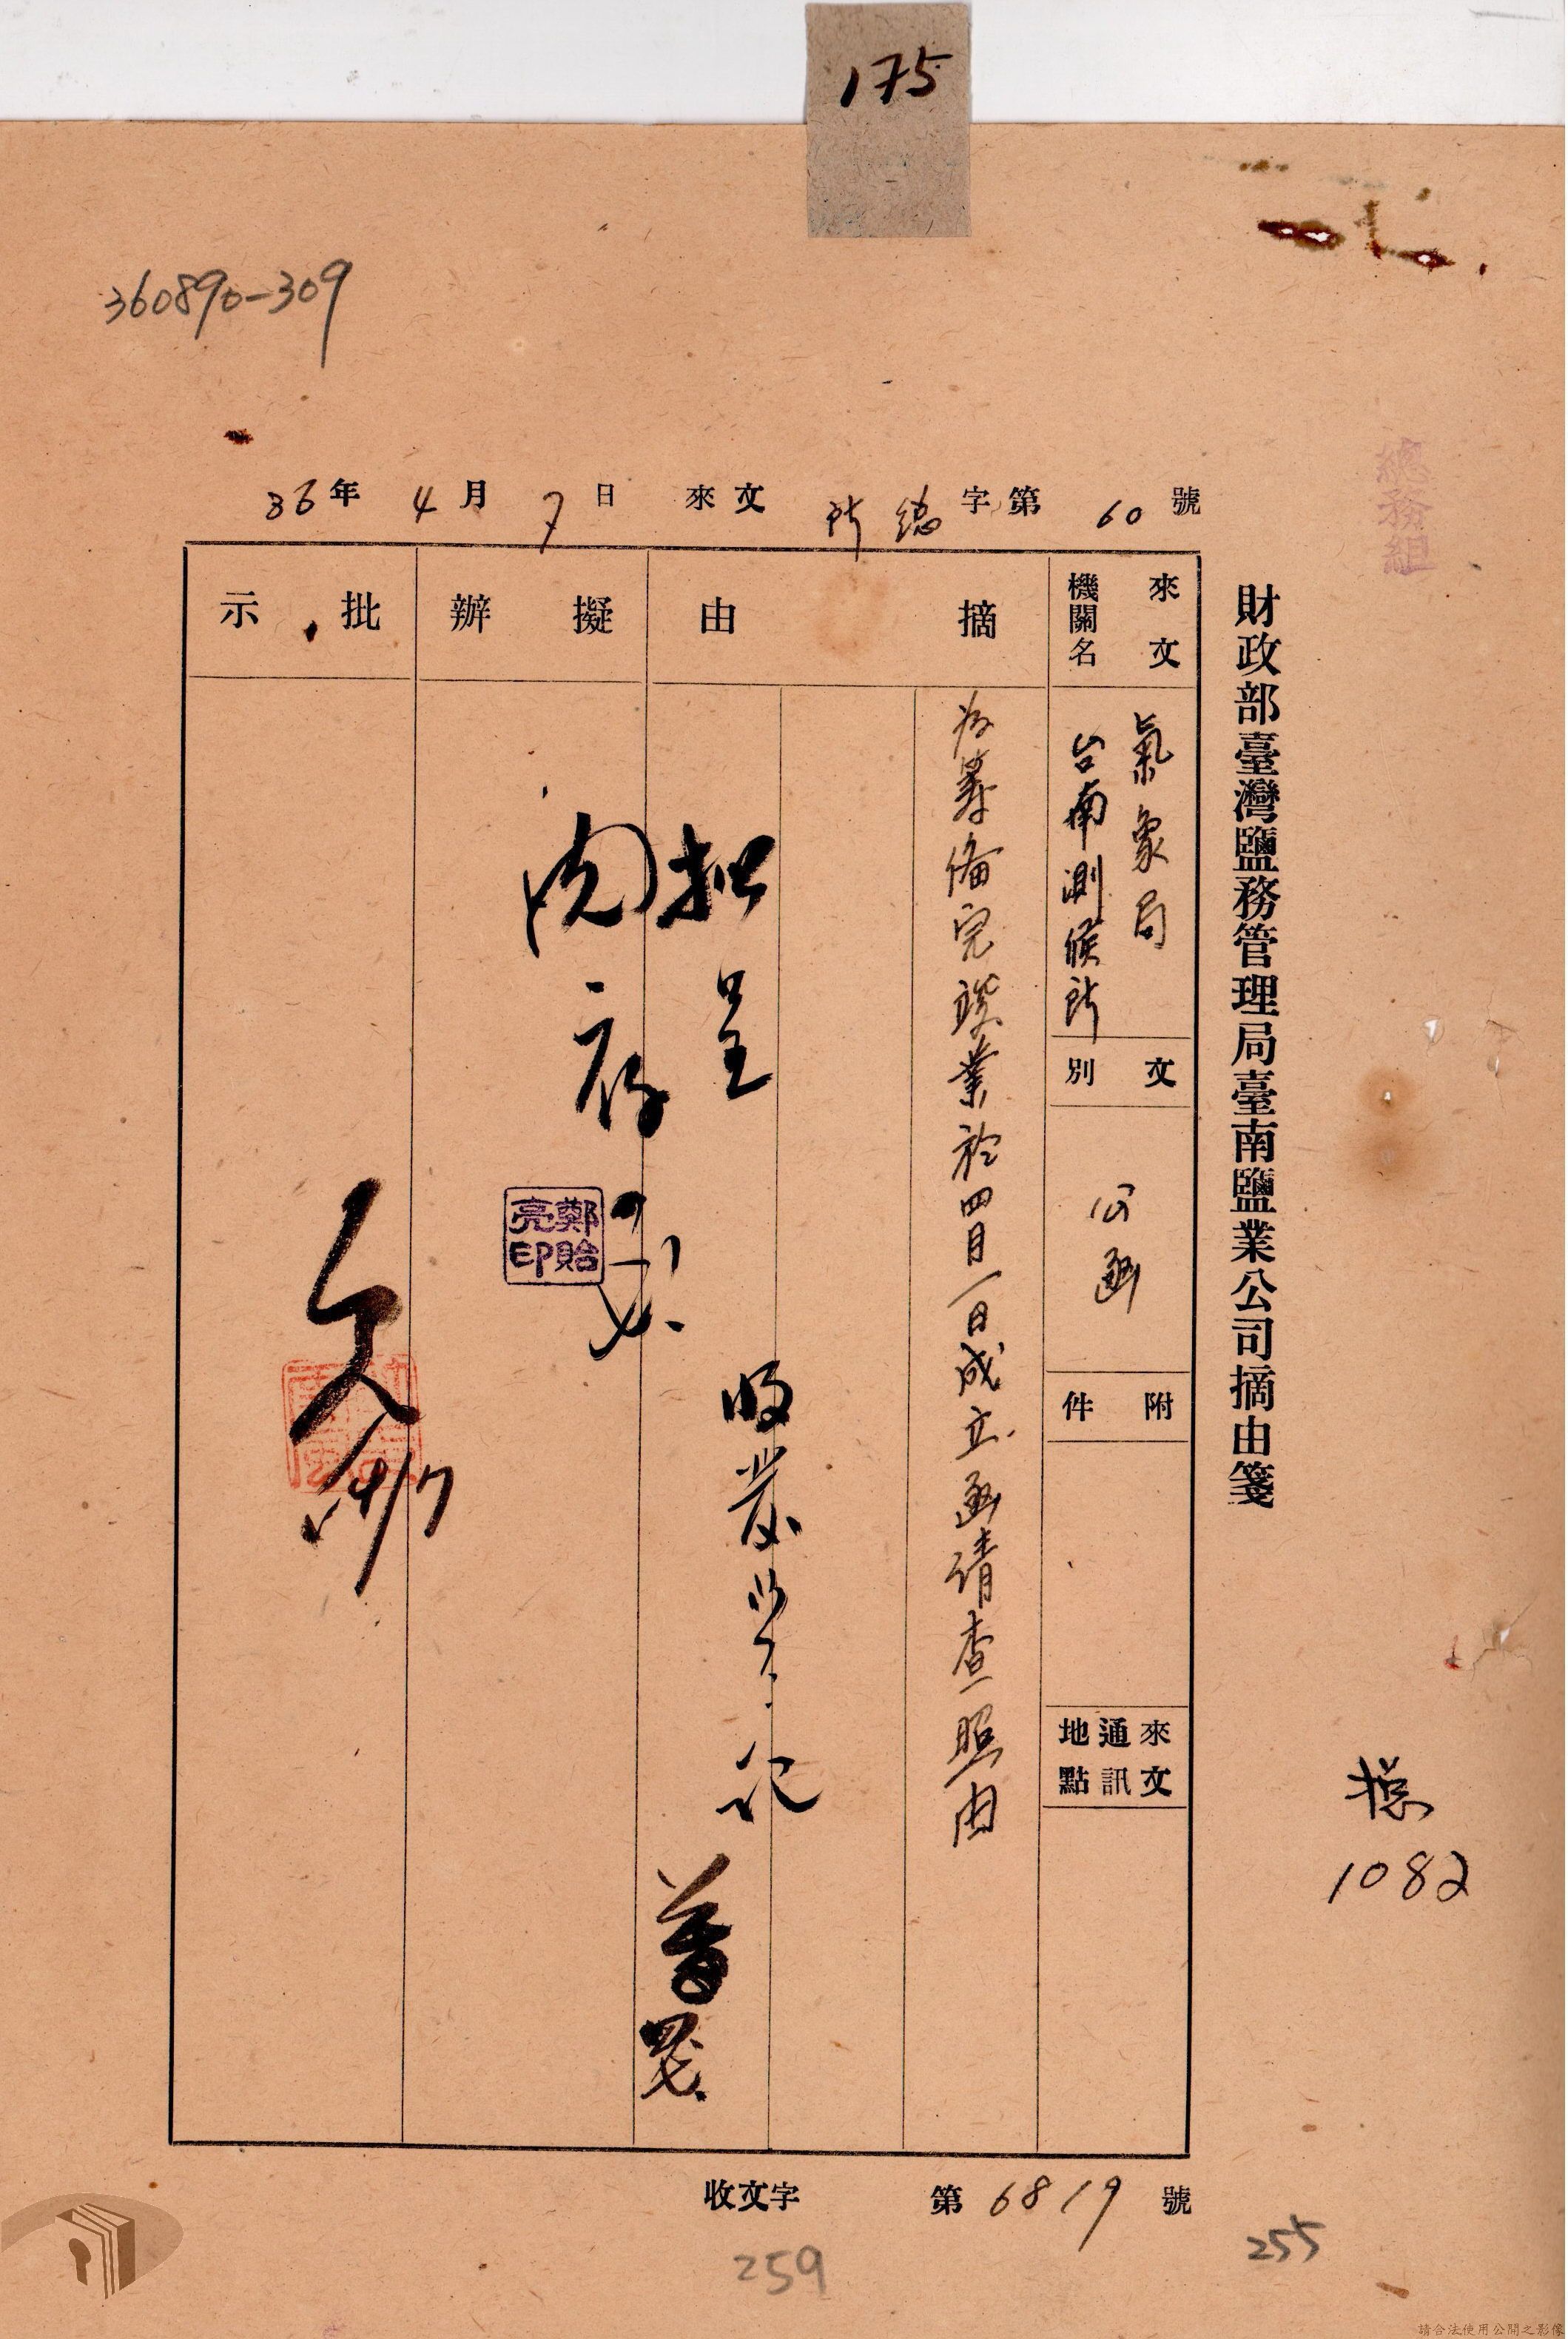 175
360890-309
總務組
財政部臺灣鹽務管理局臺南鹽業公司摘由箋
36年4月7日 來文 所總字第60號
來文機關名
氣象局
台南測候所
文別
公函
附件
來文通訊地點
摘由
為籌備完竣業於四月一日成立函請查照由
擬辦
擬呈
閱後存
鄭貽亮印
批示
收文字第6819號
1082
259
255
請合法使用公開之影像